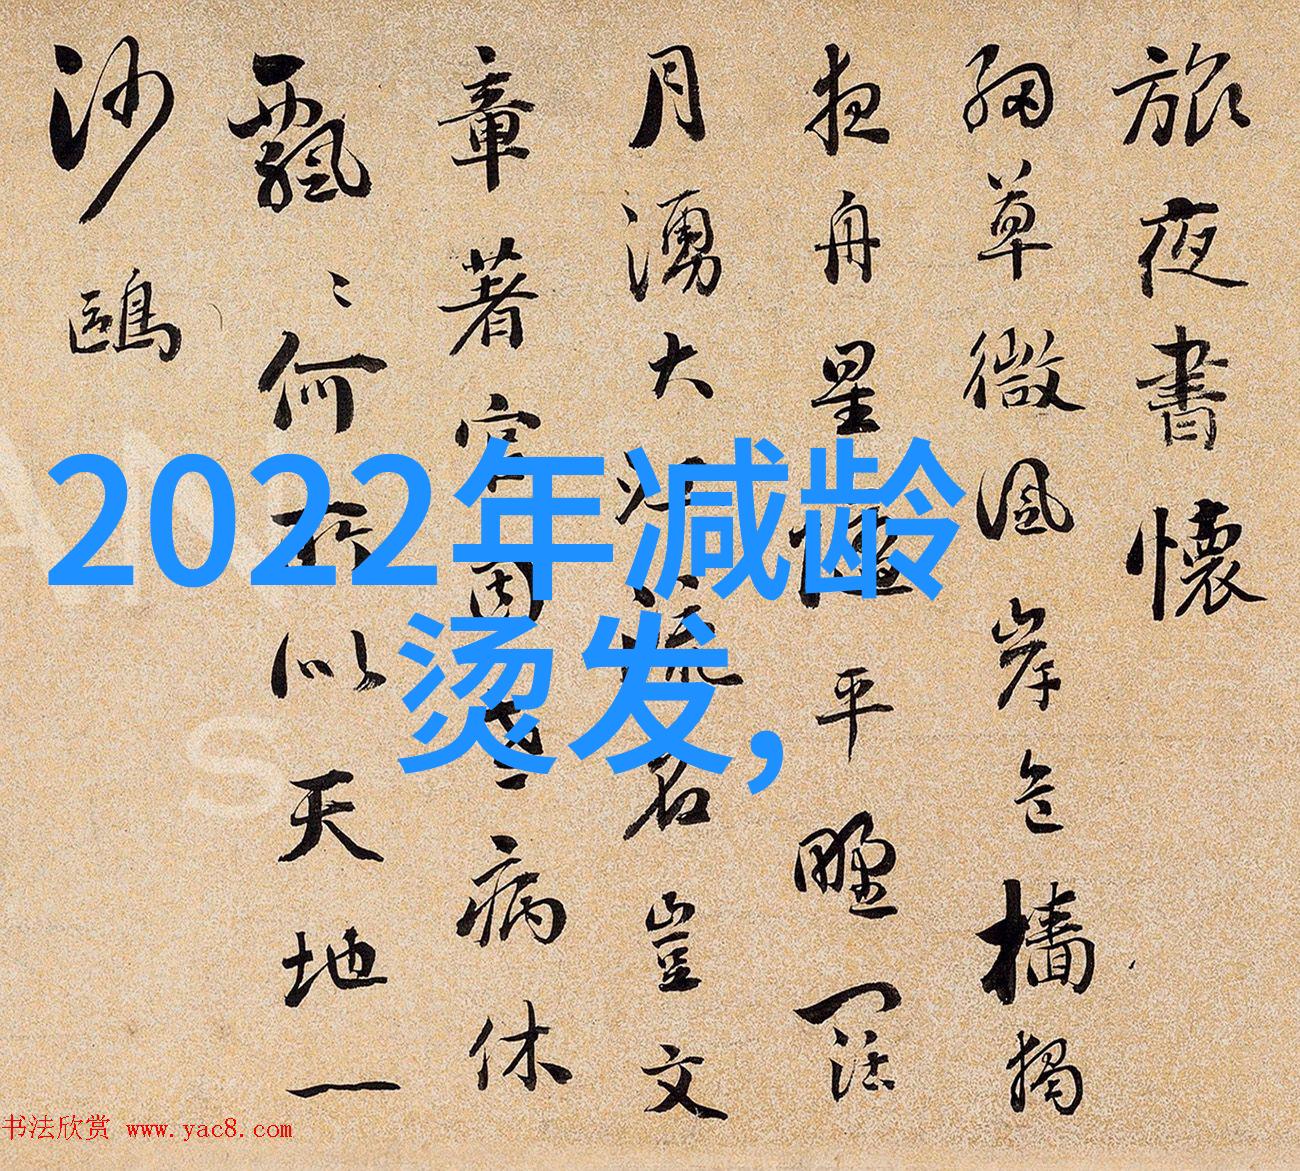 旅夜書懷
細草微風岸危檣獨
夜舟星平野闊
月湧大江流名豈文
章著官因老病休
飄〻何所似天地一
沙鷗
2022年减龄
烫发,
书法欣赏 www.yac8.com